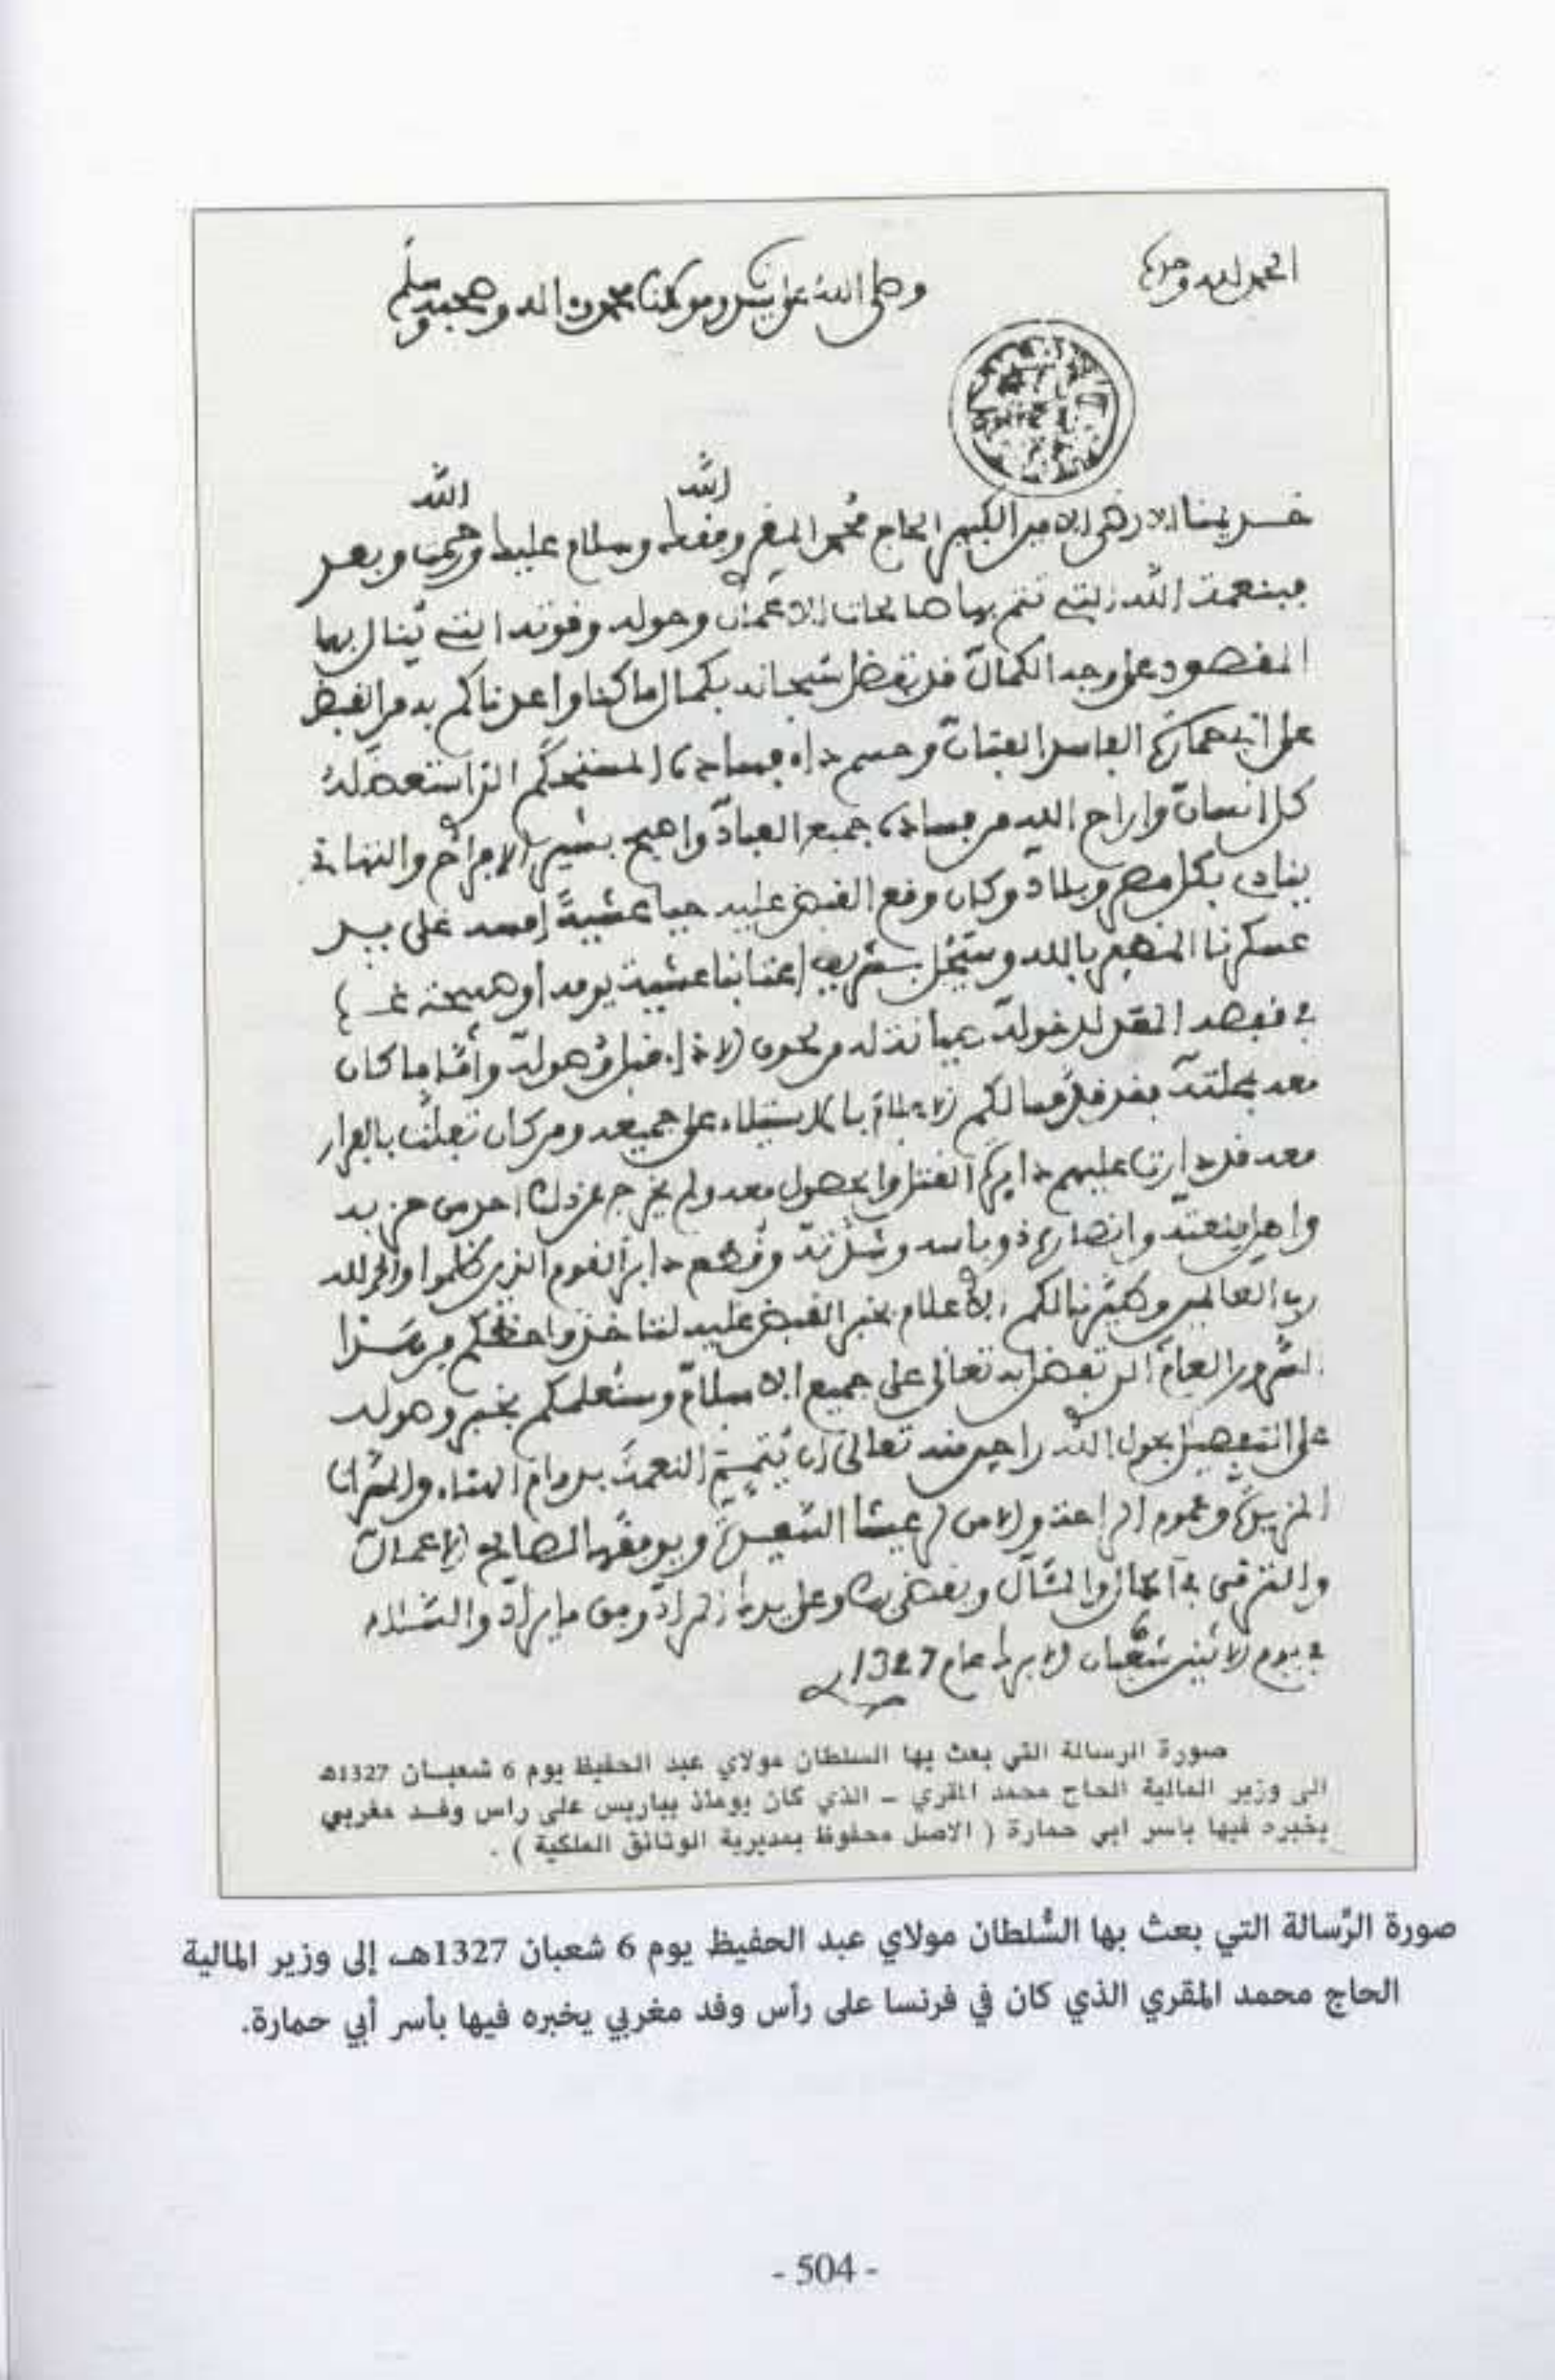 الحمد لله وحده
وصلى الله على سيدنا ومولانا محمد وآله وصحبه وسلم
خديمنا الارضى الامين الكبير الحاج محمد المقري وفقك الله وسلام عليك ورحمت الله وبعد
فبنعمة الله التي تتم بها صالحات الاعمال وحوله وقوته التي ينال بها
المقصود على وجه الكمال قد تفضل سبحانه بكمال ما كنا واعدناكم به من القبض
على ابي حمارة الفاسد الفتان وحسم داء فساده المستحكم الذي استعضله
كل انسان واراح الله من فساده جميع العباد واصبح بشير الافراح والتهاني
ينادي بكل مصر وبلاد وكان وقع القبض عليه حيا عشية امسه على يد
عسكرنا المنصور بالله وسيحل بشريف اعتابنا عشية يومه او صبيحة غده
في قفصه المعد لدخوله مهيأ له من لحوق الاذاء قبل وصوله وأما ما كان
معه بمحلته فقد قدمنا لكم الاعلام بالاستيلاء على جميعه ومن كان تعلق بالفرار
معه قد دارت عليهم دايرة القتل والحصول معه ولم يخرج عن ذلك احد من حزبه
واهل وانصاره ذو باسه وشدته وقطع دابر القوم الذين ظلموا والحمد لله
رب العالمين وطيرنا لكم الاعلام بخبر القبض عليه لتاخذوا حظكم من هذا
السرور العام الذي تفضل به تعالى على جميع الاسلام وسنعلمكم بخبر وصوله
على التفصيل بحول الله راجين منه تعالى ان يتمم النعمة بدوام الهناء والمسرات
المزيدة وعموم الراحة والامن لرعيتنا السعيدة ويوفقنا لصالح الاعمال
والترقي في الحال والمئال ويقضي بنا وعلى يدنا ازيد مراد وفق ما يراد والسلام
في يوم الاثنين 6 شعبان الابرك عام 1327
صورة الرسالة التي بعث بها السلطان مولاي عبد الحفيظ يوم 6 شعبــان 1327هـ
الى وزير المالية الحاج محمد المقري – الذي كان يومئذ بباريس على راس وفــد مغربي
يخبره فيها باسر ابي حمارة ( الاصل محفوظ بمديرية الوثائق الملكية ) .
صورة الرّسالة التي بعث بها السُّلطان مولاي عبد الحفيظ يوم 6 شعبان 1327هـ، إلى وزير المالية
الحاج محمد المقري الذي كان في فرنسا على رأس وفد مغربي يخبره فيها بأسر أبي حمارة.
- 504 -